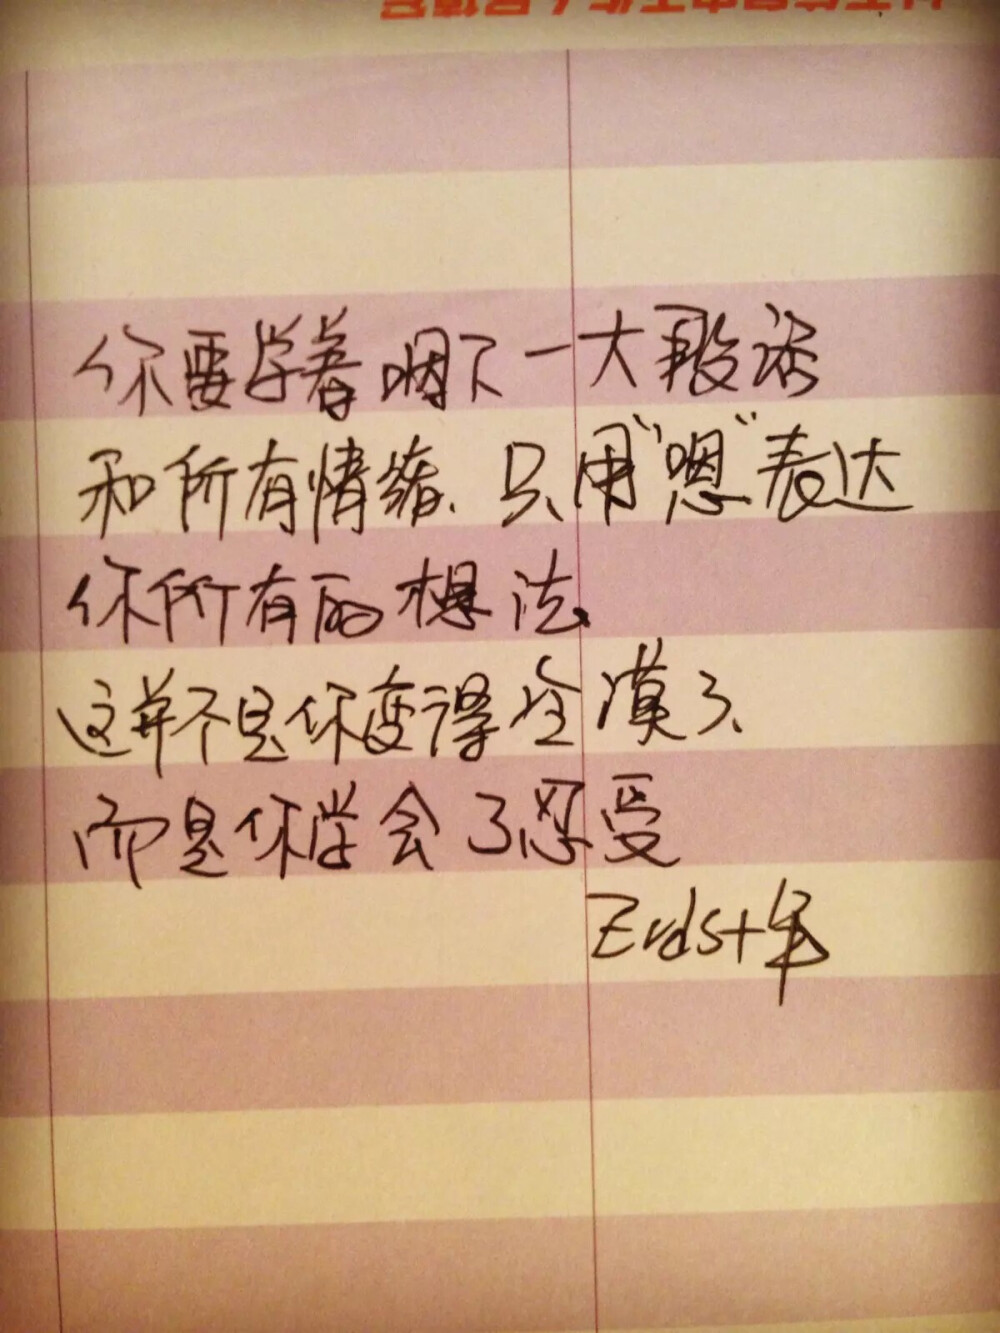 你要学着咽下一大段话
和所有情绪、只用“嗯”表达
你所有的想法、
这并不是你变得冷漠了、
而是你学会了忍受